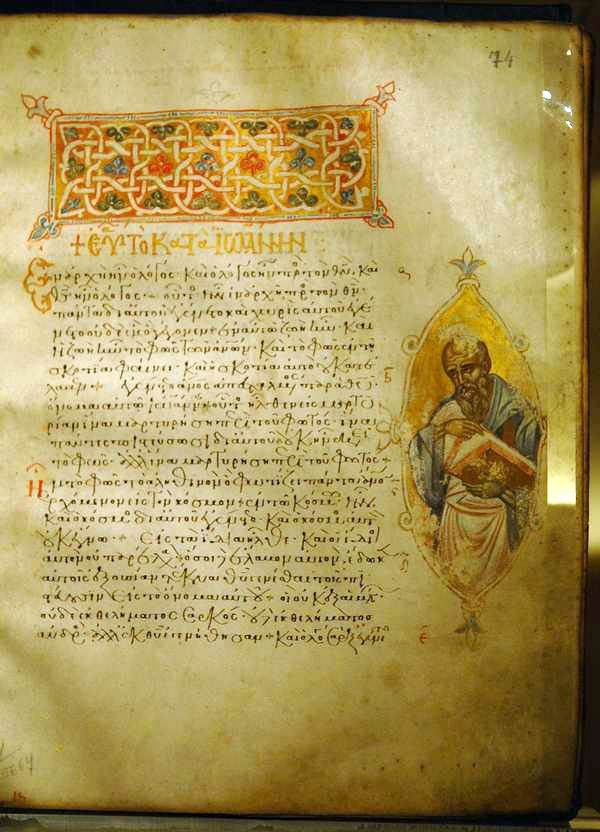 74
+ ΕΥ ΤΟ ΚΑΤΑ ΙΩΑΝΝΗΝ
Ἐν ἀρχῆ ἦν ὁ λόγος· καὶ ὁ λόγος ἦν πρὸς τὸν θν, καὶ
θς ἦν ὁ λόγος + οὗτος ἦν ἐν ἀρχῆ πρὸς τὸν θν·
πάντα δι αὐτοῦ ἐγένετο καὶ χωρὶς αὐτοῦ ἐγέ
νετο οὐδὲ ἓν ὃ γέγονεν· ἐν αὐτῶ ζωὴ ἦν· καὶ
ἡ ζωὴ ἦν τὸ φῶς τῶν ανων· καὶ τὸ φῶς ἐν τῆ
σκοτία φαίνει· καὶ ἡ σκοτία αὐτὸ οὐ κατέ
λαβεν + ἐγένετο ανος ἀπεσταλμένος παρὰ θυ
ὄνομα αὐτῶ ἰωάννης· οὗτος ἦλθεν εἰς μαρτυ
ρίαν ἵνα μαρτυρήση περὶ τοῦ φωτός· ἵνα
πάντες πιστεύσωσι δι αὐτοῦ· οὐκ ἦν ἐκεῖνος
τὸ φῶς· ἀλλ ἵνα μαρτυρήση περὶ τοῦ φωτός +
ἦν τὸ φῶς τὸ ἀληθινὸν ὃ φωτίζει πάντα ανον
ἐρχόμενον εἰς τὸν κόσμον + ἐν τῶ κόσμω ἦν
καὶ ὁ κόσμος δι αὐτοῦ ἐγένετο· καὶ ὁ κόσμος αὐτὸν
οὐκ ἔγνω + εἰς τὰ ἴδια ἦλθε· καὶ οἱ ἴδιοι
αὐτὸν οὐ παρέλαβον· ὅσοι δὲ ἔλαβον αὐτὸν, ἔδωκεν
αὐτοῖς ἐξουσίαν τέκνα θυ γενέσθαι τοῖς πι
στεύουσιν εἰς τὸ ὄνομα αὐτοῦ + οἳ οὐκ ἐξ αἱμάτων
οὐδὲ ἐκ θελήματος σαρκὸς· οὐδὲ ἐκ θελήματος
ἀνδρὸς· ἀλλ ἐκ θυ ἐγεννήθησαν + καὶ ὁ λόγος σὰρξ ἐγένετο